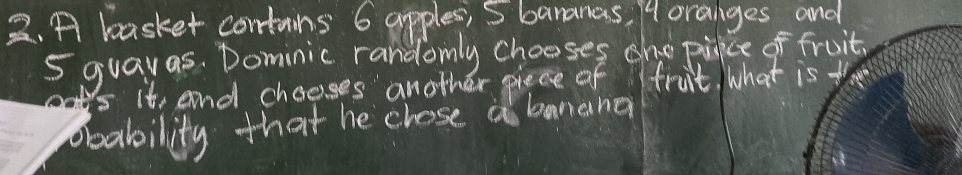 2. A basket contains 6 apples, 5 bananas, 4 oranges and
5 guavas. Dominic randomly chooses one piece of fruit,
eats it, and chooses another piece of fruit, what is the
probability that he chose a banana